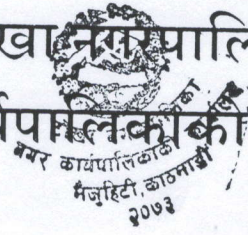 खा नगरपालि
र्यपालिकाको
नगर कार्यपालिकाको
मैजुहिटी, काठमाडौं
२०७३